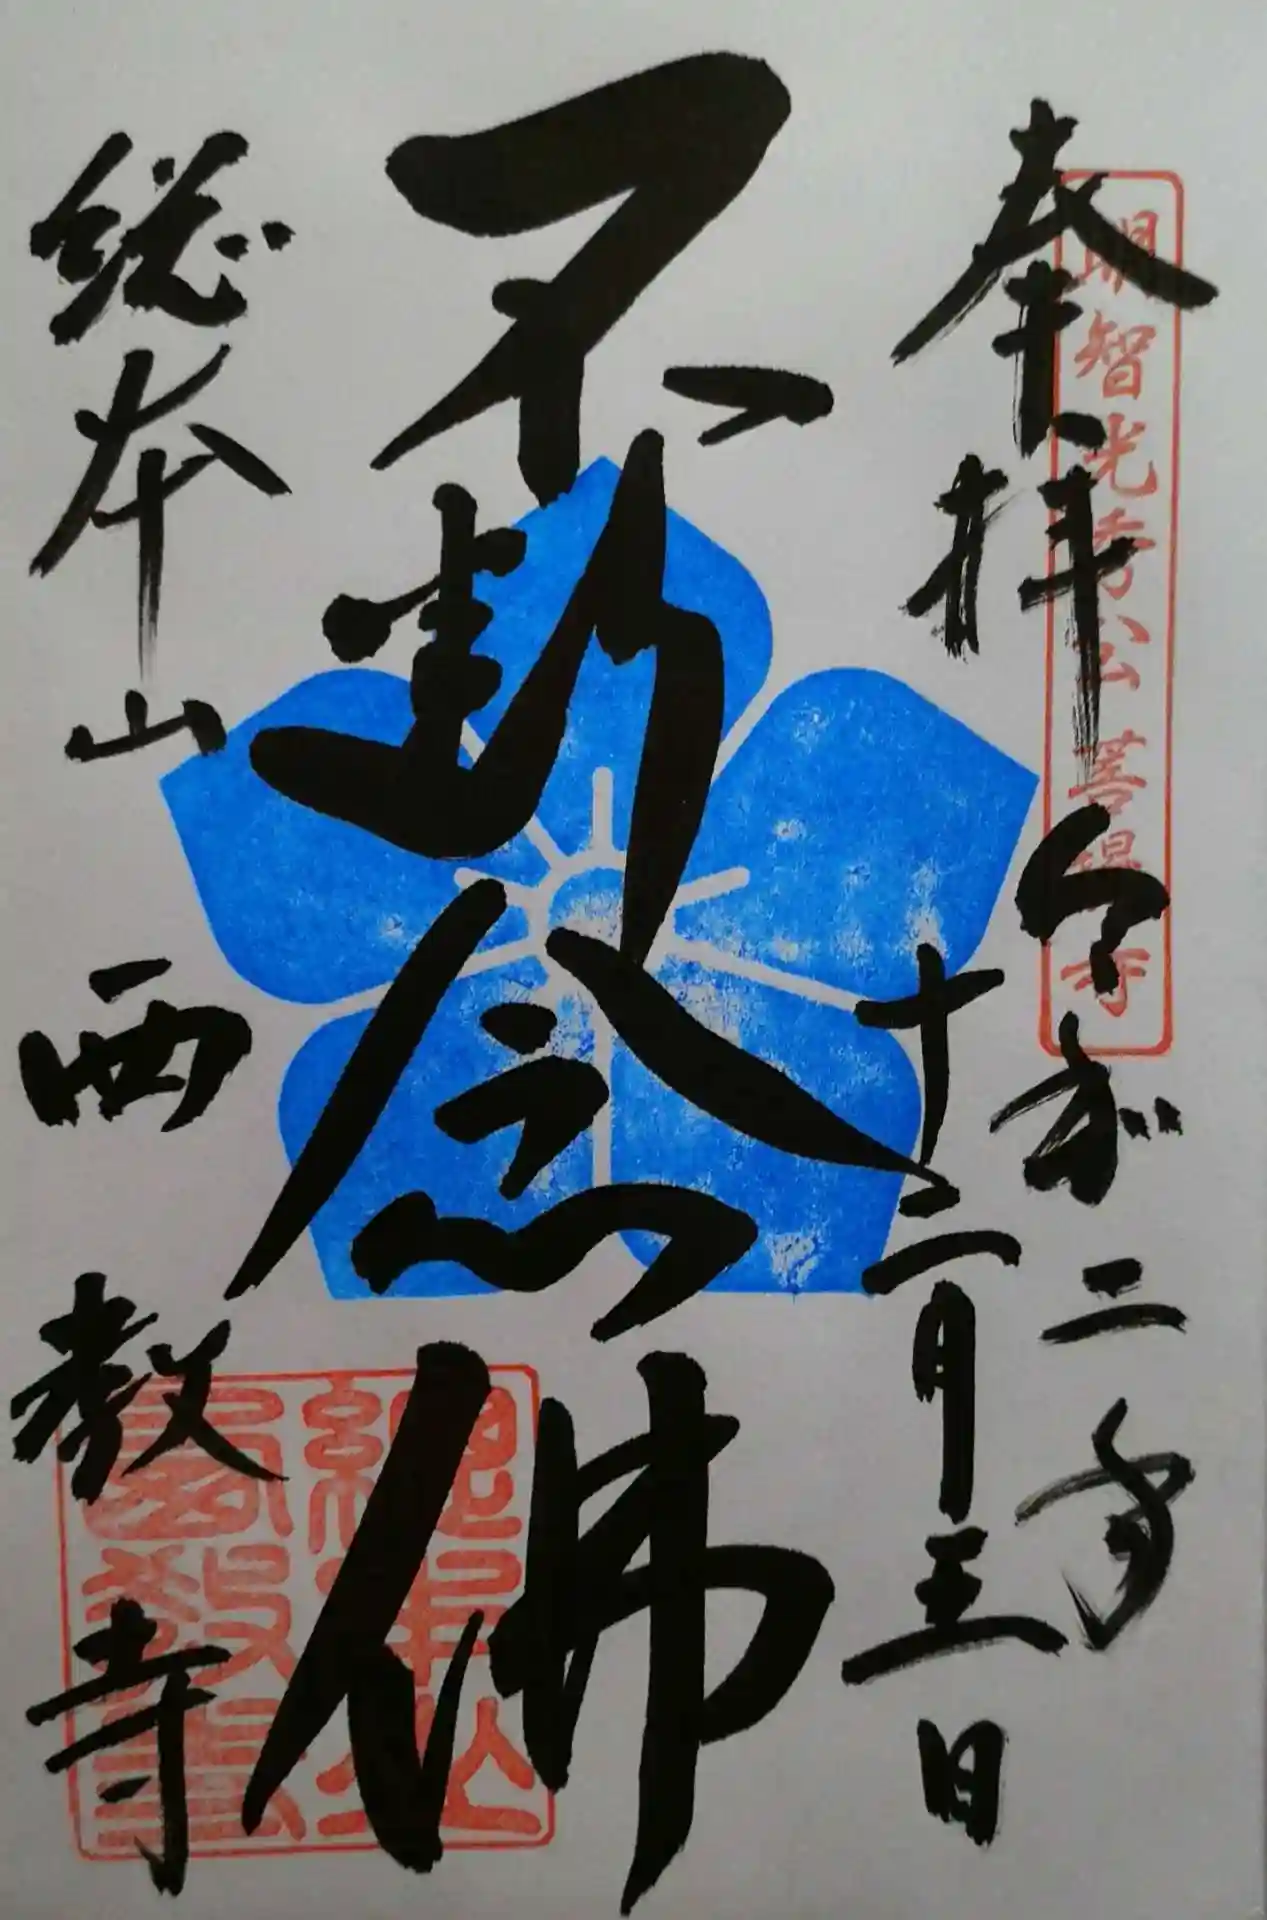 奉拝
明智光秀公菩提寺
令和二年
十二月五日
不断念佛
総本山
西教寺